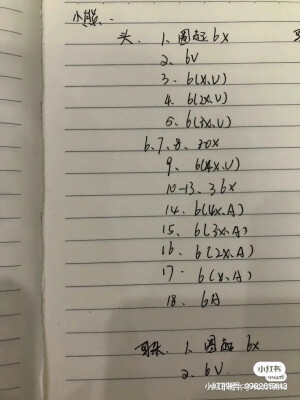 小熊、
头、1、圈起 6x
2、6V
3、6(x、V)
4、6(2x、V)
5、6(3x、V)
6、7、8、30x
9、6(4x、V)
10-13、36x
14、6(4x、A)
15、6(3x、A)
16、6(2x、A)
17、6(x、A)
18、6A
耳朵、1、圈起 6x
2、6V
小红书